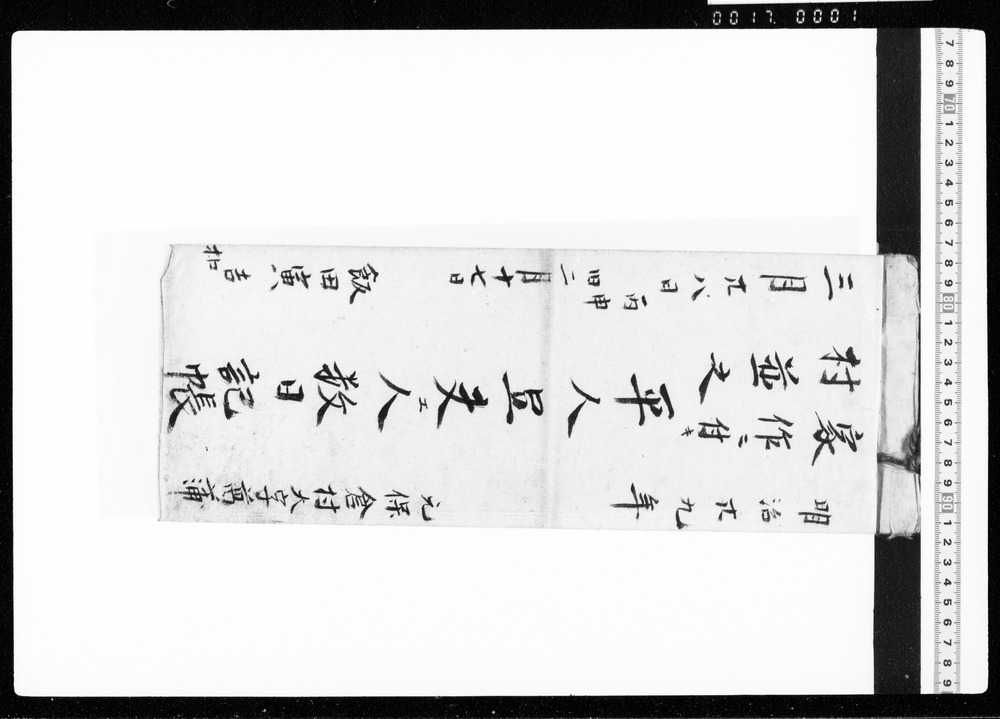 明治廿九年
元保倉村大字高蒲
家作ニ付キ
村並大平人
夫人工数日記帳
三月廿八日
丙申
二月十七日
飯田寅吉
扣
0017 0001